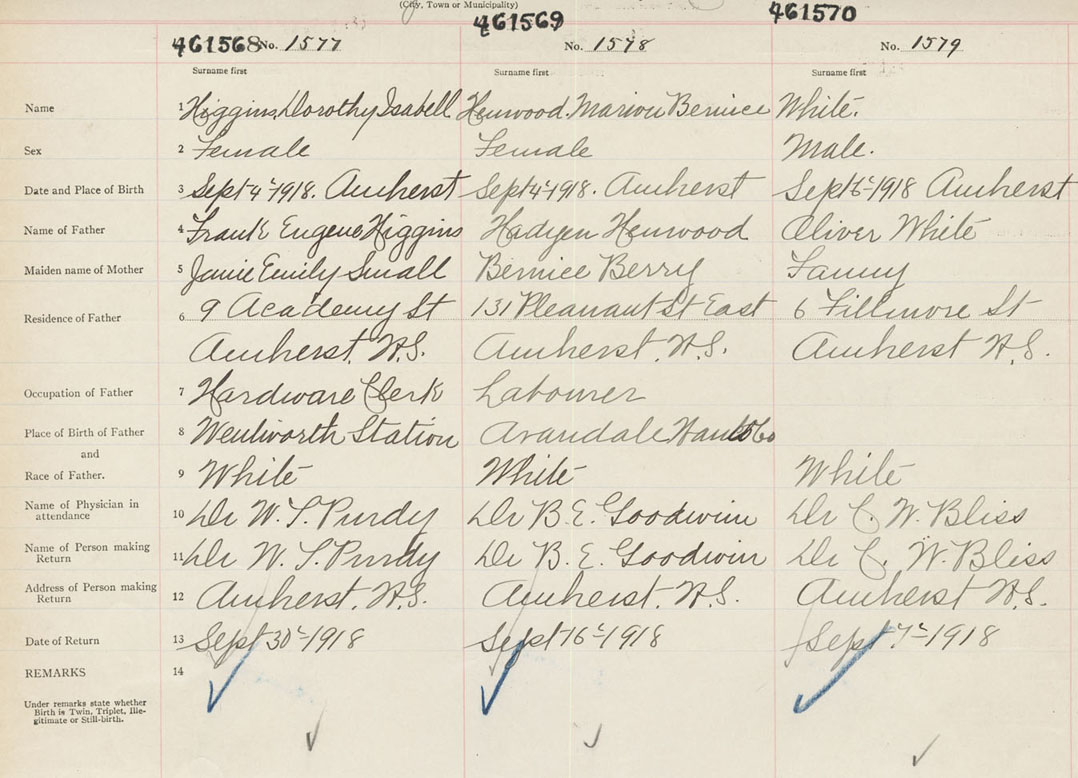 (City, Town or Municipality)
461568 461569 461570
No. 1577 No. 1578 No. 1579
Surname first Surname first Surname first
Name 1 Higgins, Dorothy Isabell Henwood. Marion Bernice White.
Sex 2 Female Female Male.
Date and Place of Birth 3 Sept 4-1918. Amherst Sept 4-1918. Amherst Sept 6-1918 Amherst
Name of Father 4 Frank Eugene Higgins Hadyen Henwood Oliver White
Maiden name of Mother 5 Janie Emily Small Bernice Berry Fanny
Residence of Father 6 9 Academy St 131 Pleanant St East 6 Fillmore St
Amherst. N.S. Amherst. N.S. Amherst N.S.
Occupation of Father 7 Hardware Clerk Labourer
Place of Birth of Father 8 Wentworth Station Avandale Hants Co
and
Race of Father. 9 White White White
Name of Physician in attendance 10 Dr W. S. Purdy Dr B. E. Goodwin Dr C. W. Bliss
Name of Person making Return 11 Dr W. S. Purdy Dr B. E. Goodwin Dr C. W. Bliss
Address of Person making Return 12 Amherst. N.S. Amherst. N.S. Amherst N.S.
Date of Return 13 Sept 30-1918 Sept 16-1918 Sept. 7-1918
REMARKS 14
Under remarks state whether
Birth is Twin, Triplet, Ille-
gitimate or Still-birth.